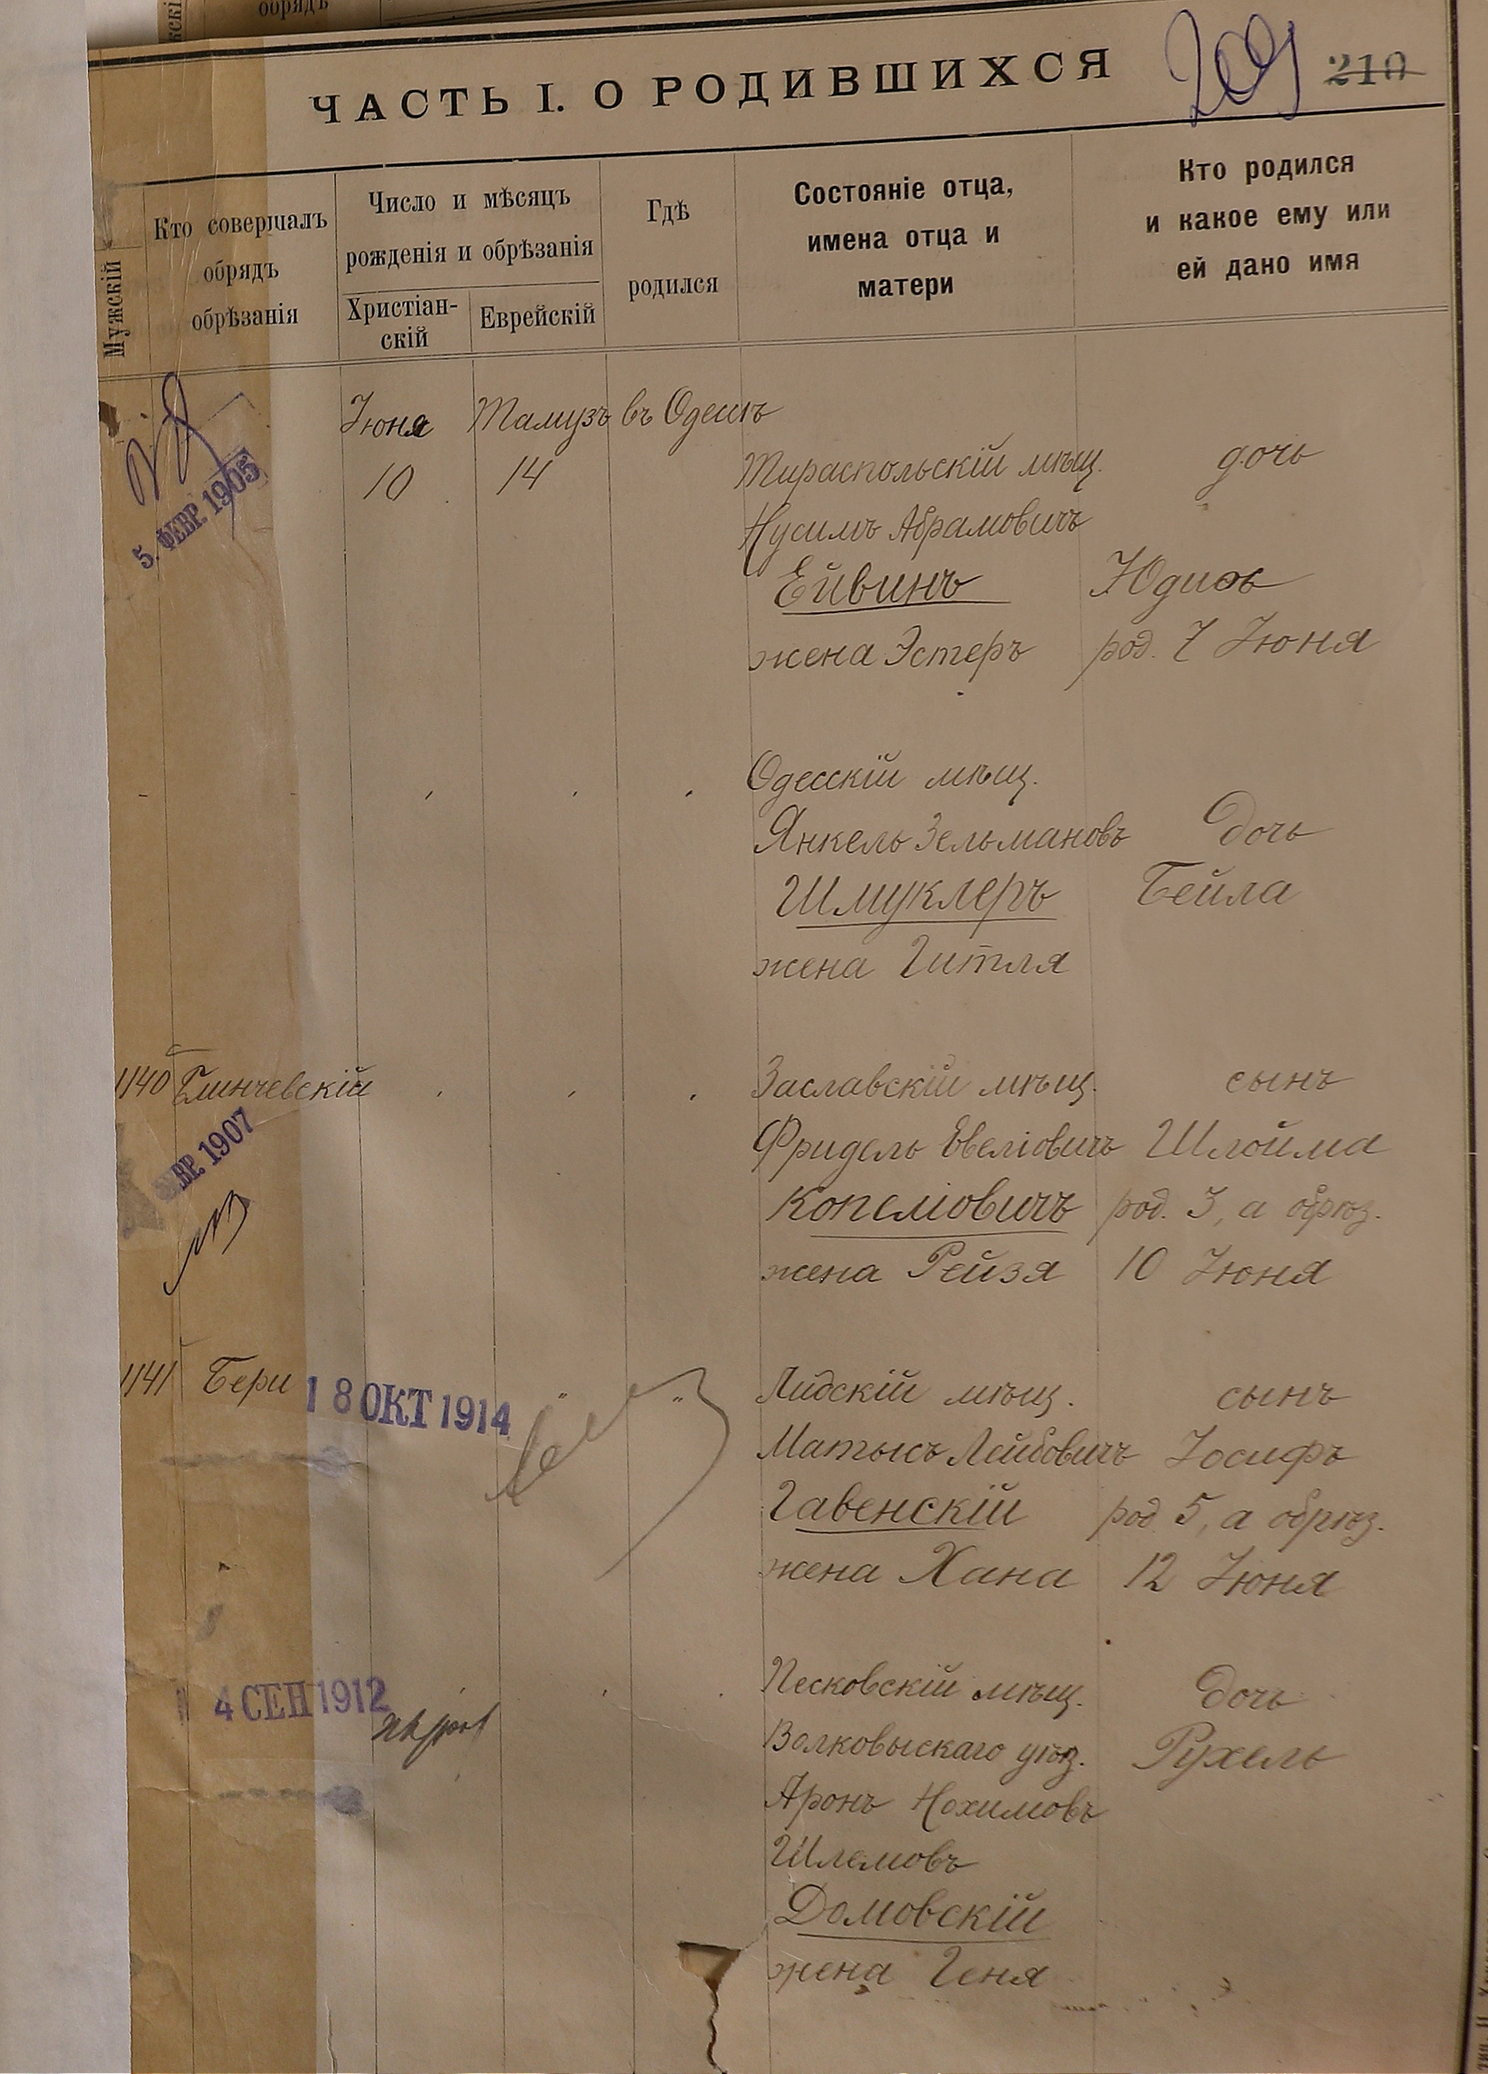 обрядъ
ЧАСТЬ I. О РОДИВШИХСЯ
209 210
Мужскій
Кто совершалъ
обрядъ
обрѣзанія
Число и мѣсяцъ
рожденія и обрѣзанія
Христіан-
скій
Еврейскій
Гдѣ
родился
Состояніе отца,
имена отца и
матери
Кто родился
и какое ему или
ей дано имя
Іюня Тамузъ въ Одессѣ
10 14
5. ФЕВР. 1905
Тираспольскій мѣщ. дочь
Нусимъ Абрамовичъ
Ейвинъ Юдиѳь
жена Эстеръ род. 7 Іюня
Одесскій мѣщ.
Янкель Зельмановъ дочь
Шмуклеръ Бейла
жена Гитля
1140 Глинчевскій Заславскій мѣщ. сынъ
ВР. 1907
Фридель Евеліовичъ Шлойма
Копеліовичъ род. 3, а обрѣз.
жена Рейзя 10 Іюня
1141 Бери 18 ОКТ 1914 Лидскій мѣщ. сынъ
Матысъ Лейбовичъ Іосифъ
Гавенскій род. 5, а обрѣз.
жена Хана 12 Іюня
4 СЕН 1912
Песковскій мѣщ. дочь
Волковыскаго уѣз. Рухель
Аронъ Нохимовъ
Шлемовъ
Домовскій
жена Геня